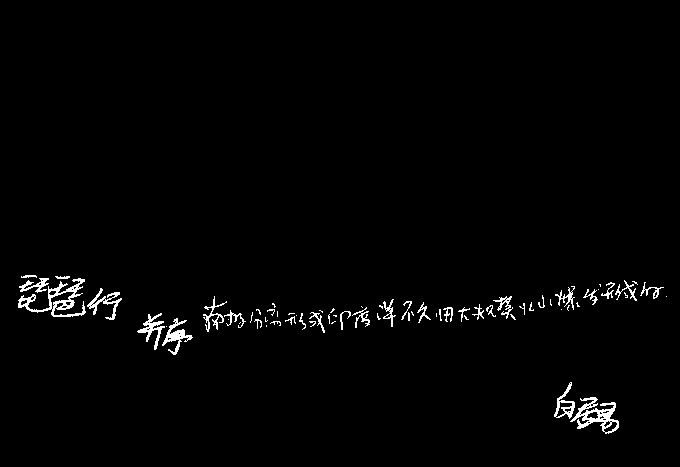 琵琶行
并序
南极分离形成印度洋不久用大规模火山爆发形成的
白居易